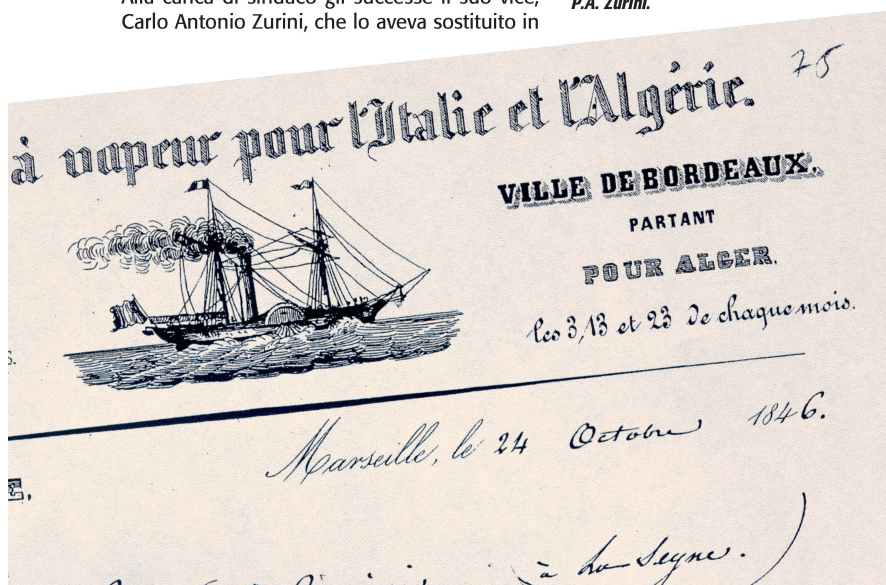 Carlo Antonio Zurini, che lo aveva sostituito in
P.A. Zurini.
75
à vapeur pour l'Italie et l'Algérie.
VILLE DE BORDEAUX,
PARTANT
POUR ALGER,
les 3, 13 et 23 de chaque mois.
S.
Marseille, le 24 Octobre 1846.
E.
à La Seyne.